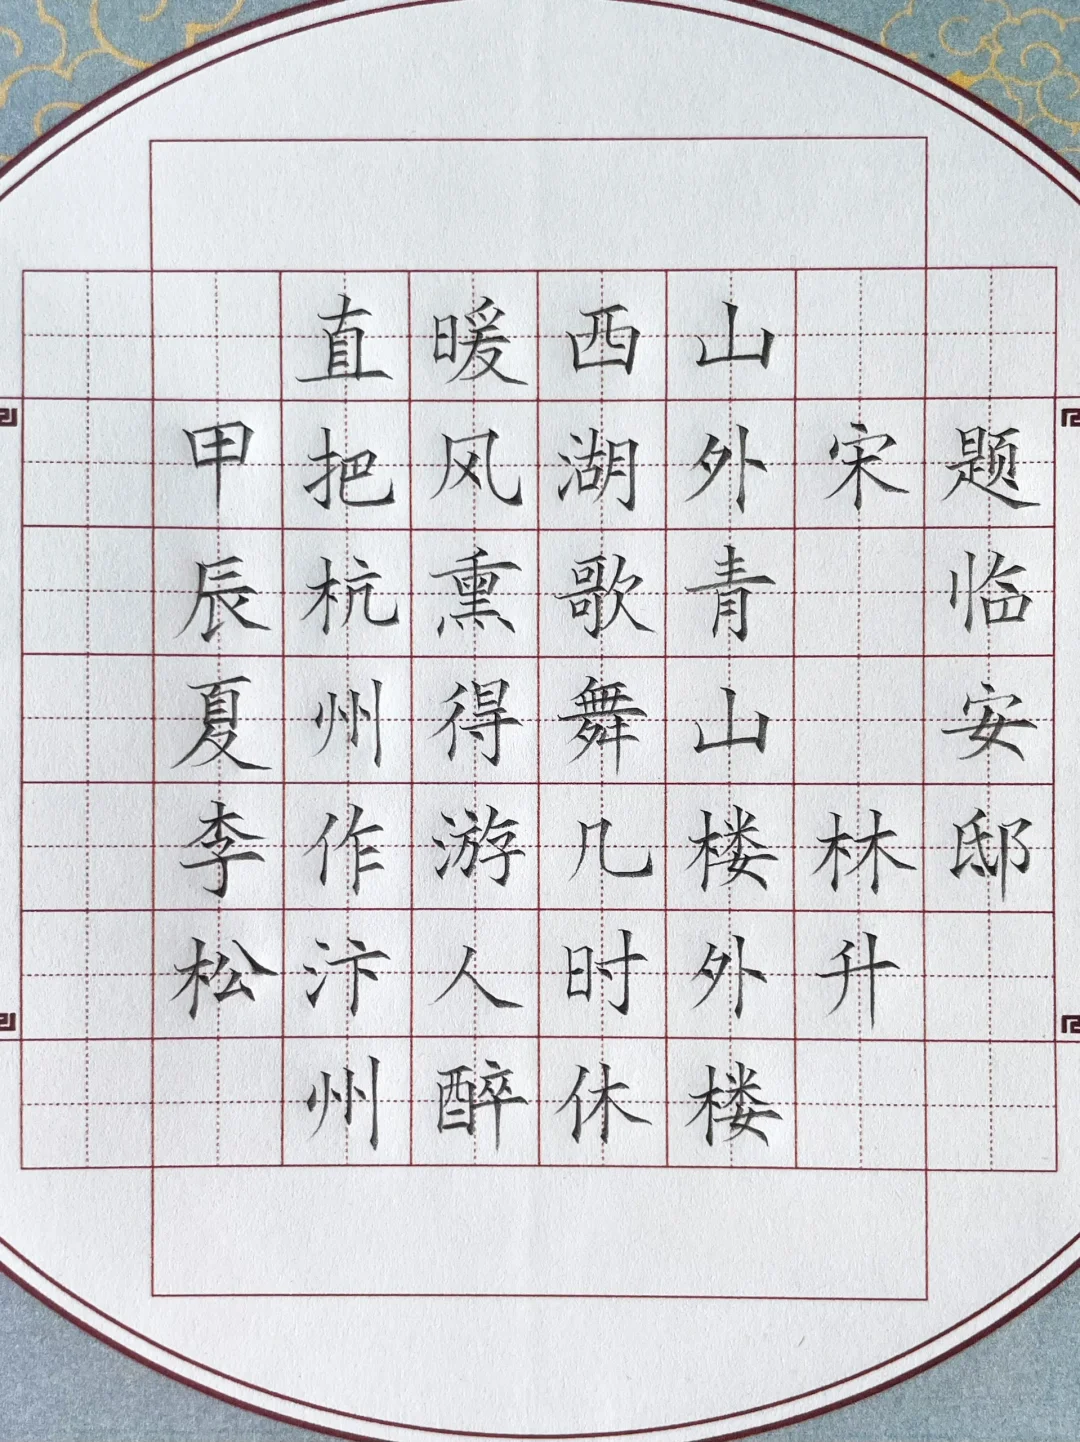 题临安邸
宋 林升
山外青山楼外楼
西湖歌舞几时休
暖风熏得游人醉
直把杭州作汴州
甲辰夏李松